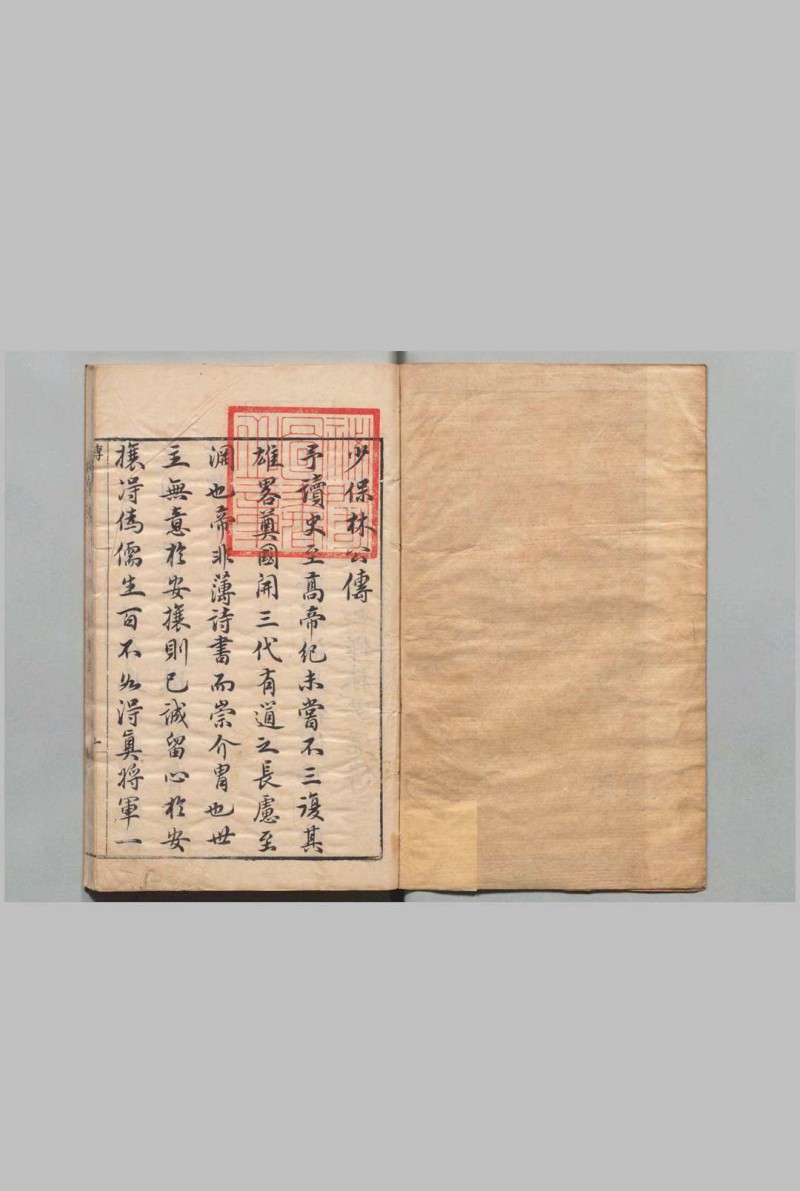 少保林公傳
予讀史至高帝紀未嘗不三復其
雄畧奠國開三代有道之長慮至
淵也帝非薄詩書而崇介冑也世
主無意於安攘則已誠留心於安
攘得僞儒生百不如得真將軍一
傳
一